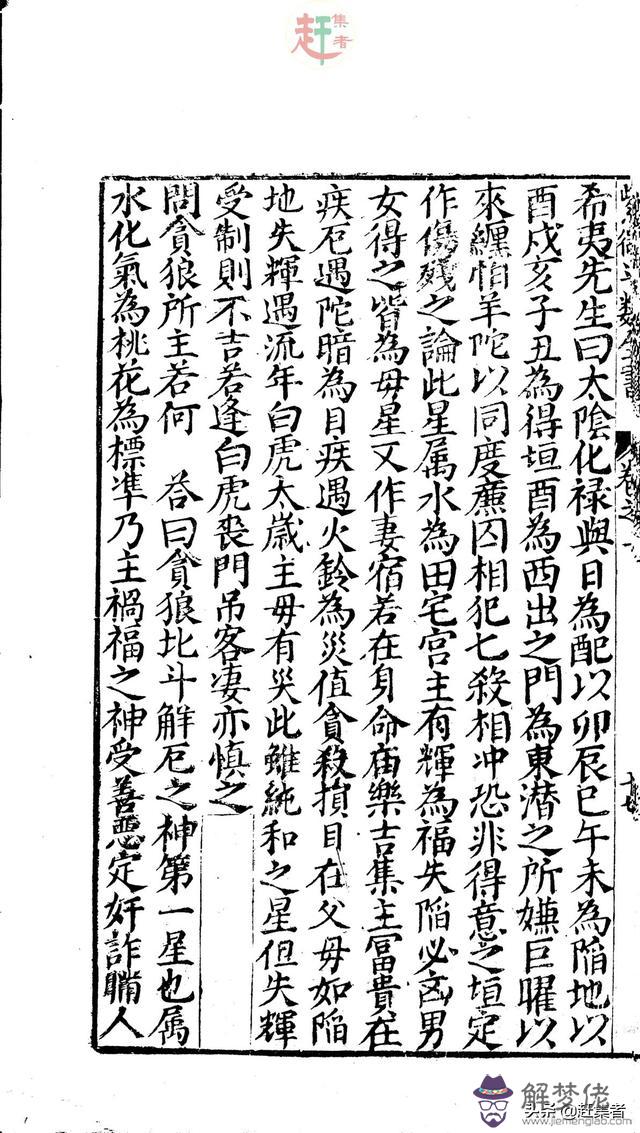 赶集者
希夷先生曰太陰化禄與日為配以卯辰巳午未為陷地以
酉戍亥子丑為得垣酉為西出之門為東潜之所嫌巨曜以
來纏怕羊陀以同度㢘囚相犯七殺相冲恐非得意之垣定
作傷殘之論此星属水為田宅宫主有輝為福失陷必凶男
女得之皆為毋星又作妻宿若在身命庙樂吉集主富貴在
疾厄遇陀暗為目疾遇火鈴為災值貪殺損目在父毋如陷
地失輝遇流年白虎太歲主毋有災此雖純和之星但失輝
受制則不吉若逢白虎喪門吊客凄亦慎之
問貪狼所主若何 荅曰貪狼北斗解厄之神第一星也属
水化氣為桃花為標準乃主禍福之神受善惡定奸詐瞞人
解梦佬
头条@赶集者
www.jiemenglao.com